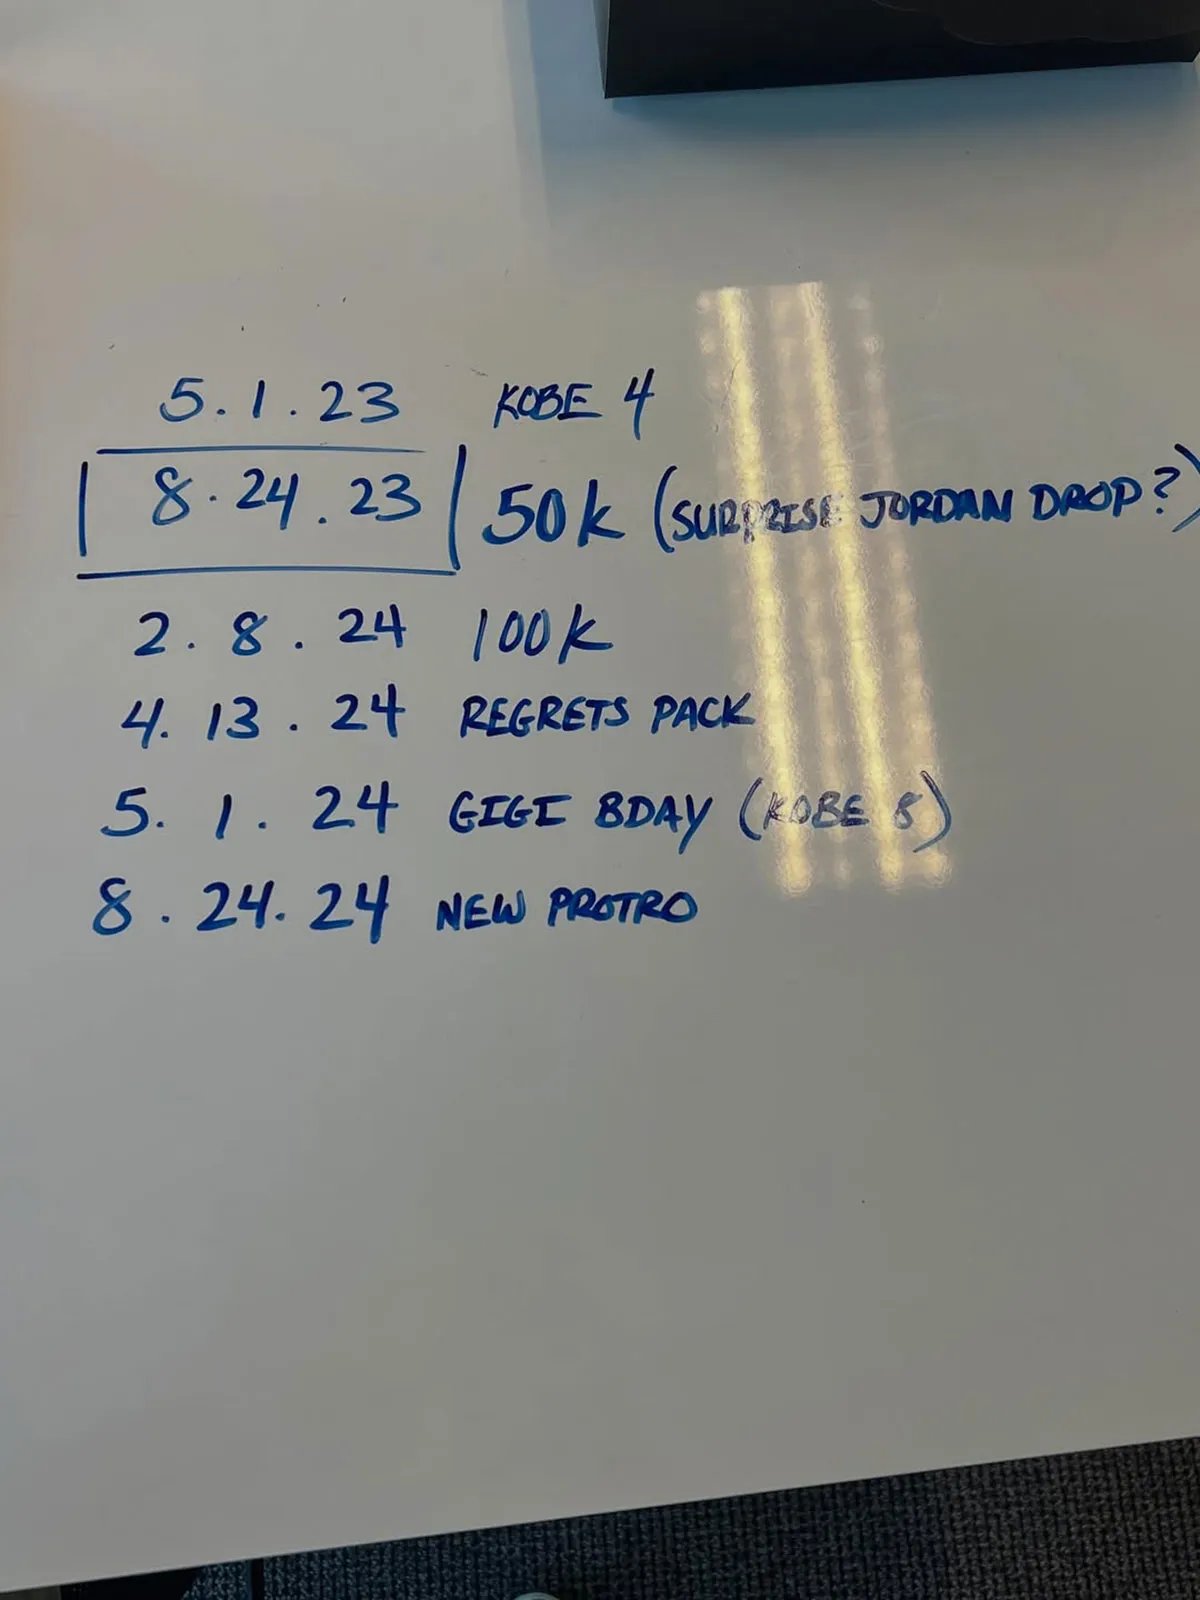 5.1.23 KOBE 4
8.24.23 50k (SURPRISE JORDAN DROP?)
2.8.24 100k
4.13.24 REGRETS PACK
5.1.24 GIGI BDAY (KOBE 8)
8.24.24 NEW PROTRO